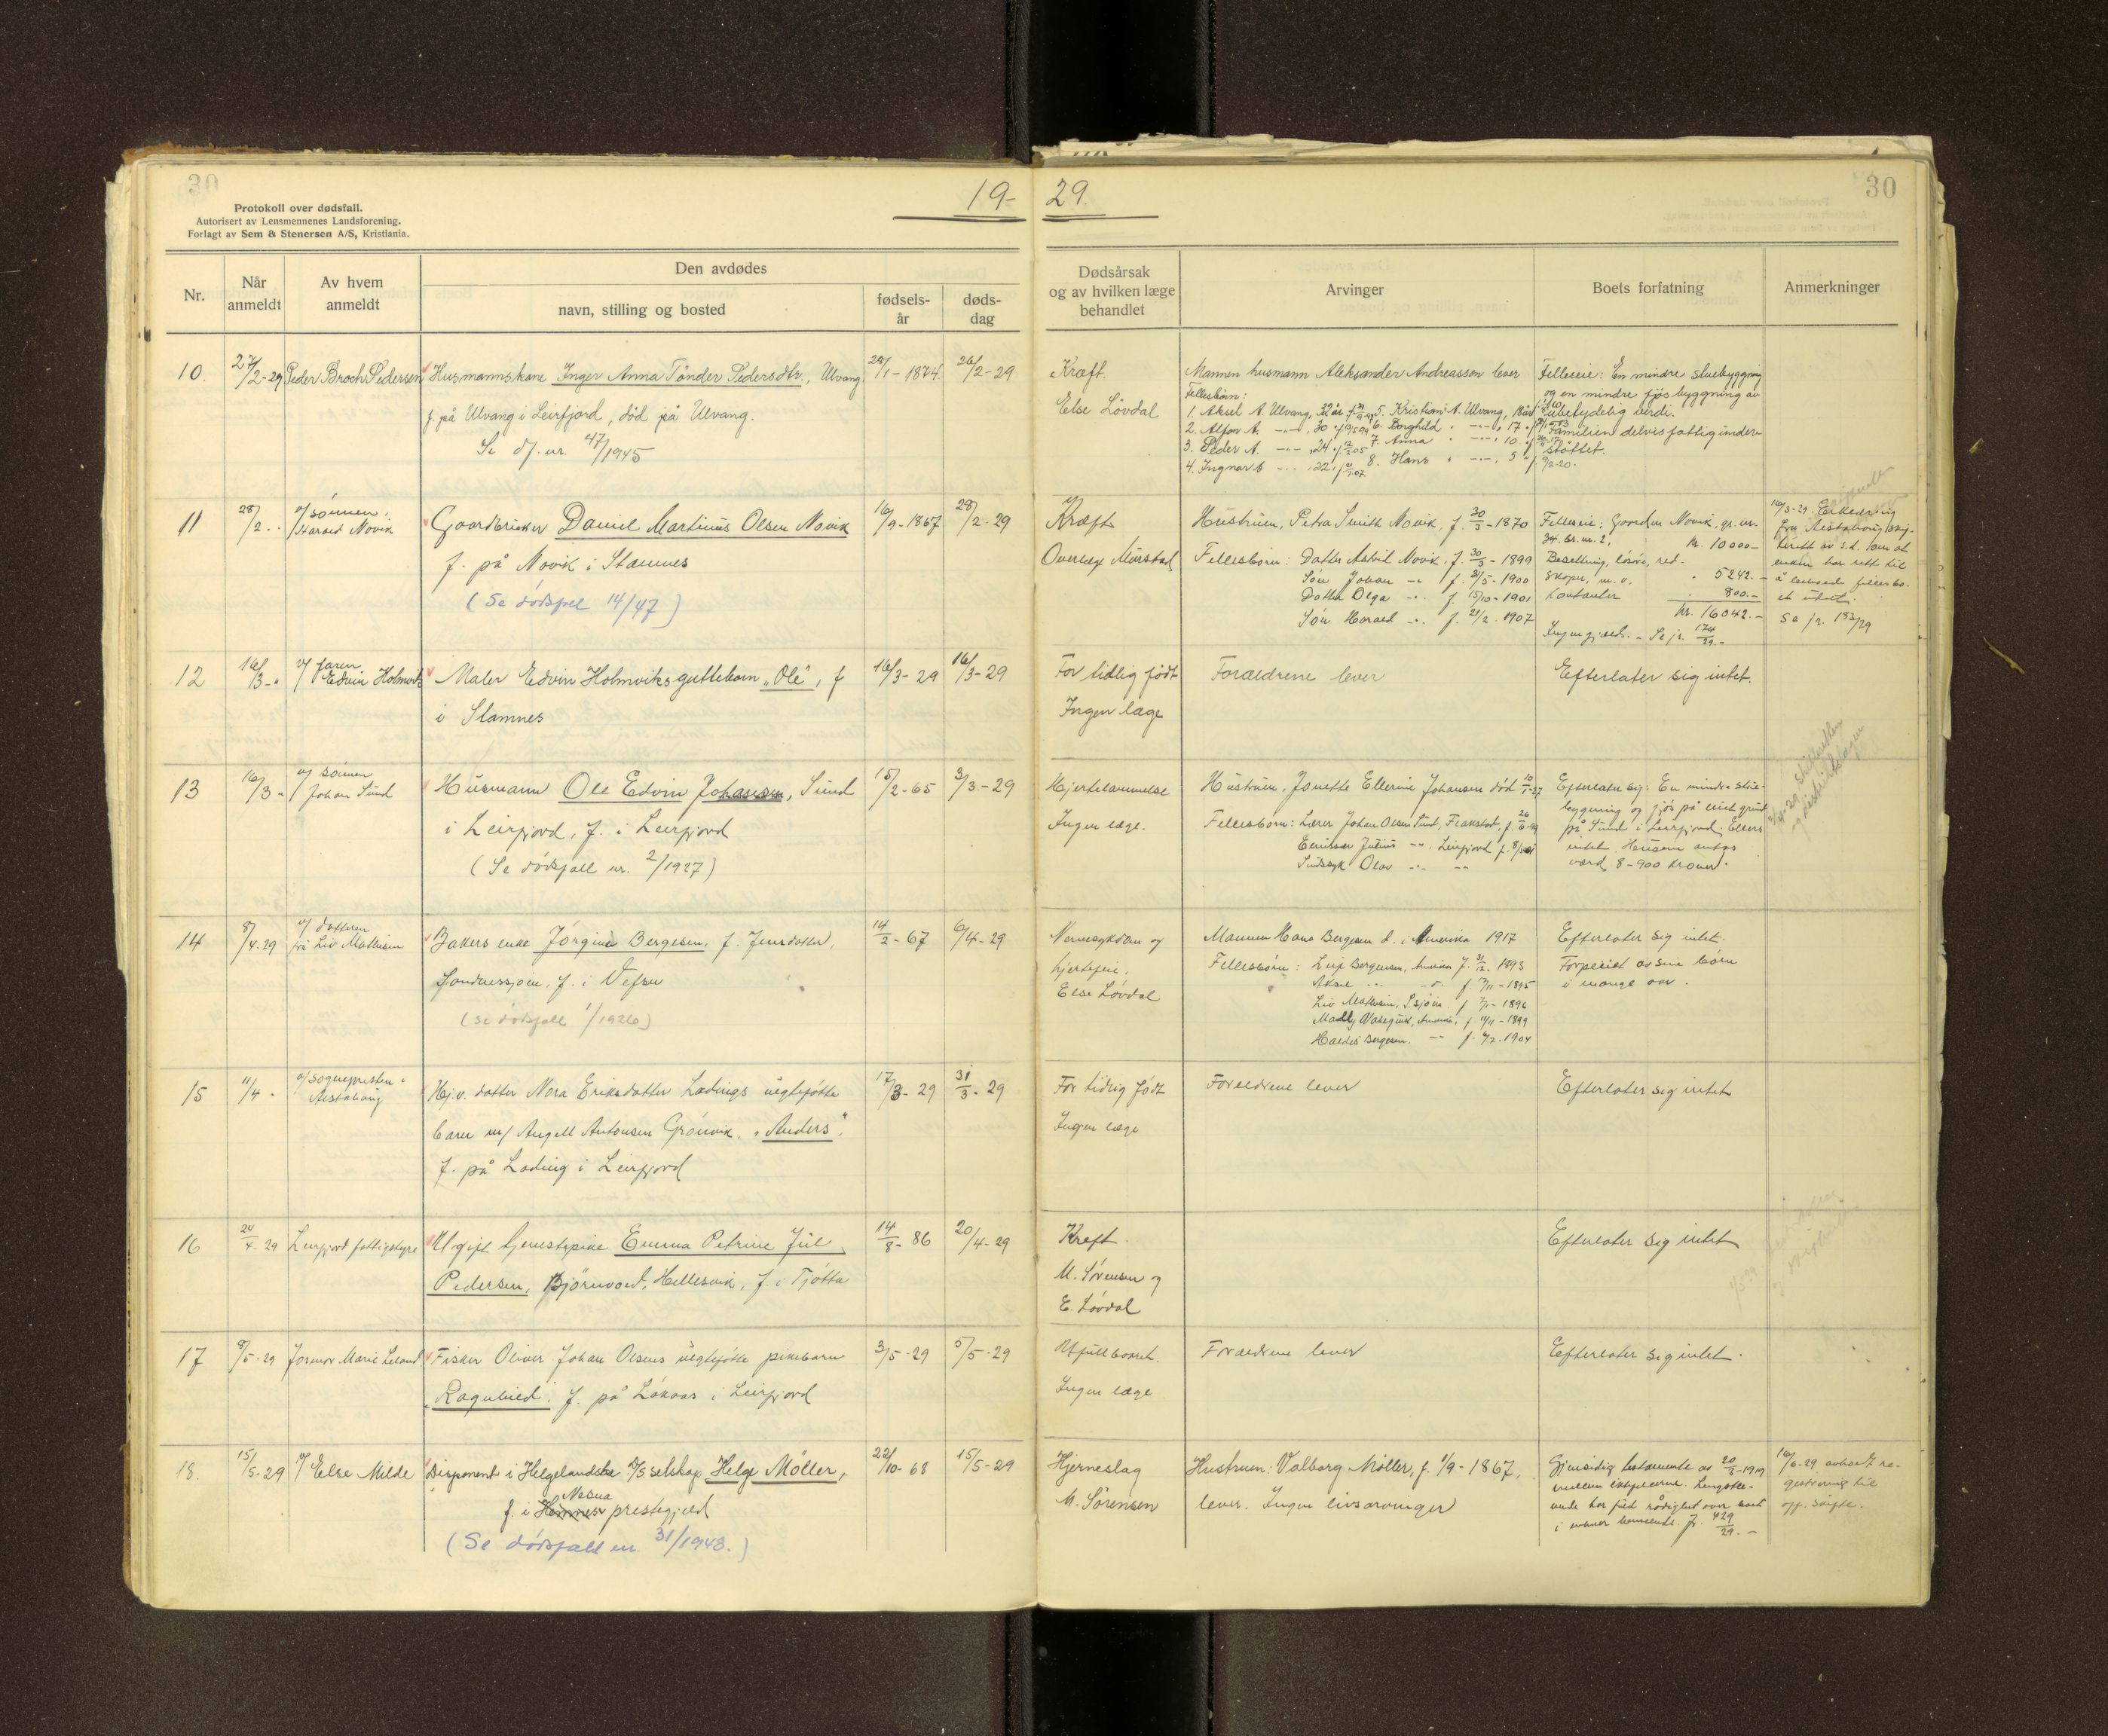 30
Protokoll over dødsfall.
Autorisert av Lensmennenes Landsforening.
Forlagt av Sem & Stenersen A/S, Kristiania.
19-
29.
30
Nr.
Når anmeldt
Av hvem anmeldt
Den avdødes
navn, stilling og bosted
fødsels-år
døds-dag
Dødsårsak og av hvilken læge behandlet
Arvinger
Boets forfatning
Anmerkninger
10. 27/2-29 Peder Broch Pedersen Husmannskone Inger Anna Tönder Pedersdtr., Ulvang 28/1-1874 26/2-29
f. på Ulvang i Leirfjord, død på Ulvang.
Se df. nr. 47/1945
Kræft.
Else Lövdal
Mannen husmann Aleksander Andreassen lever
Fellesbörn:
1. Aksel A. Ulvang, 32 år 5. Kristian A. Ulvang, 18 år
2. Alfon A. 30 6. Borghild 17
3. Peder A. 24 7. Anna 10
4. Ingmar 22 8. Hans
Felleseie: En mindre stuebyggning
og en mindre fjösbyggning av
ubetydelig verdi.
Familien delvis fattigunder-
støttet.
11 28/2 - v/ sönnen Harald Novik Gaardbruker Daniel Martinus Olsen Novik 16/9-1867 28/2-29
f. på Novik i Stamnes
(Se dødsfal 14/47)
Kræft
Overlæge Murstad
Hustruen, Petra Smith Novik, f. 30/3-1870
Fellesbörn: Datter Astrid Novik, f. 30/3-1899
Sön Johan f. 31/5-1900
Datter Olga f. 15/10-1901
Sön Harald f. 21/2-1907
Felleseie: Gaarden Novik, gr. nr.
34. br. nr. 2, kr. 10000-
Besetning, lösöre, red-
skaper, m. v. 5242.-
Kontanter 800.-
Kr. 16042.-
Se jr. 174/29.-
16/3-29
enken har rett til
Se jr. 183/29
12 16/3 - v/ faren Edvin Holmvik Maler Edvin Holmviks guttebarn "Ole", f 16/3-29 16/3-29
i Stamnes
For tidlig födt
Ingen læge
Forældrene lever
Efterlater sig intet.
13 16/3 - v/ sönnen Johan Sund Husmann Ole Edvin Johansen, Sund 15/2-65 3/3-29
i Leirfjord, f. i Leirfjord
(Se dödsfall nr. 2/1927)
Hjertelammelse
Ingen læge.
Hustruen, Jonette Ellerine Johansen död
Fellesbörn: Lærer Johan Olsen Sund,
Julius Leirfjord
Sindssyk Olav
Efterlater sig: En mindre stue-
bygning og fjös på leiet grund
på Sund i Leirfjord. Ellers
intet. Husene antas
værd 8-900 kroner.
14 8/4-29 v/ datteren fru Liv Mathisen Bakers enke Jörgine Bergesen, f. Jensdatter, 14/2-67 6/4-29
Sandnessjöen. f. i Vefsn
(Se dödsfall 1/1926)
Nervesykdom og
hjertefeil.
Else Lövdal
Mannen Hans Bergesen d. i Amerika 1917
Fellesbörn: Leif Bergesen, Amerika f. 31/12-1893
Aksel f. 7/11-1895
Liv Mathisen, S.sjöen f 7/1-1896
Amerika, f 11/11-1899
Haldis Bergesen. f. 6/2-1904
Efterlater sig intet.
Forpleiet av sine börn
i mange aar.
15 11/4 - v/ sognepresten i Alstahaug Hj.v. datter Nora Eriksdatter Ladings uegtefötte 17/3-29 31/3-29
barn m/ Angell Antonsen Grönvik, "Anders".
f. på Lading i Leirfjord
For tidlig födt
Ingen læge
Forældrene lever
Efterlater sig intet
16 24/4-29 Leirfjord fattigstyre Ugift tjenestepike Emma Petrine Jul 14/8-86 20/4-29
Pedersen, Hellesvik, f. i Tjötta
Kreft.
M. Sörensen og
E. Lövdal
Efterlater sig intet
17 8/5-29 Jormor Marie Leland Fisker Oliver Johan Olsens uegtefötte pikebarn 3/5-29 5/5-29
Ragnhild. f. på Lökaas i Leirfjord
Ufuldbaaret.
Ingen læge
Forældrene lever
Efterlater sig intet.
18. 15/5-29 v/ Else Milde Disponent i Helgelandske A/S selskap Helge Möller, 22/10-68 15/5-29
Nesna
f. i Hemnes prestegjeld
(Se dödsfall nr. 31/1948.)
Hjerneslag
M. Sörensen
Hustruen: Valborg Möller, f. 1/9-1867,
lever. Ingen livsarvinger
Gjensidig testamente av 20/2-1919
mellem ektefellerne. Lengstle-
vende har fuld rådighet over boet
jr. 429/29.-
16/6-29 avsendt re-
gistrering til
off. skifte.